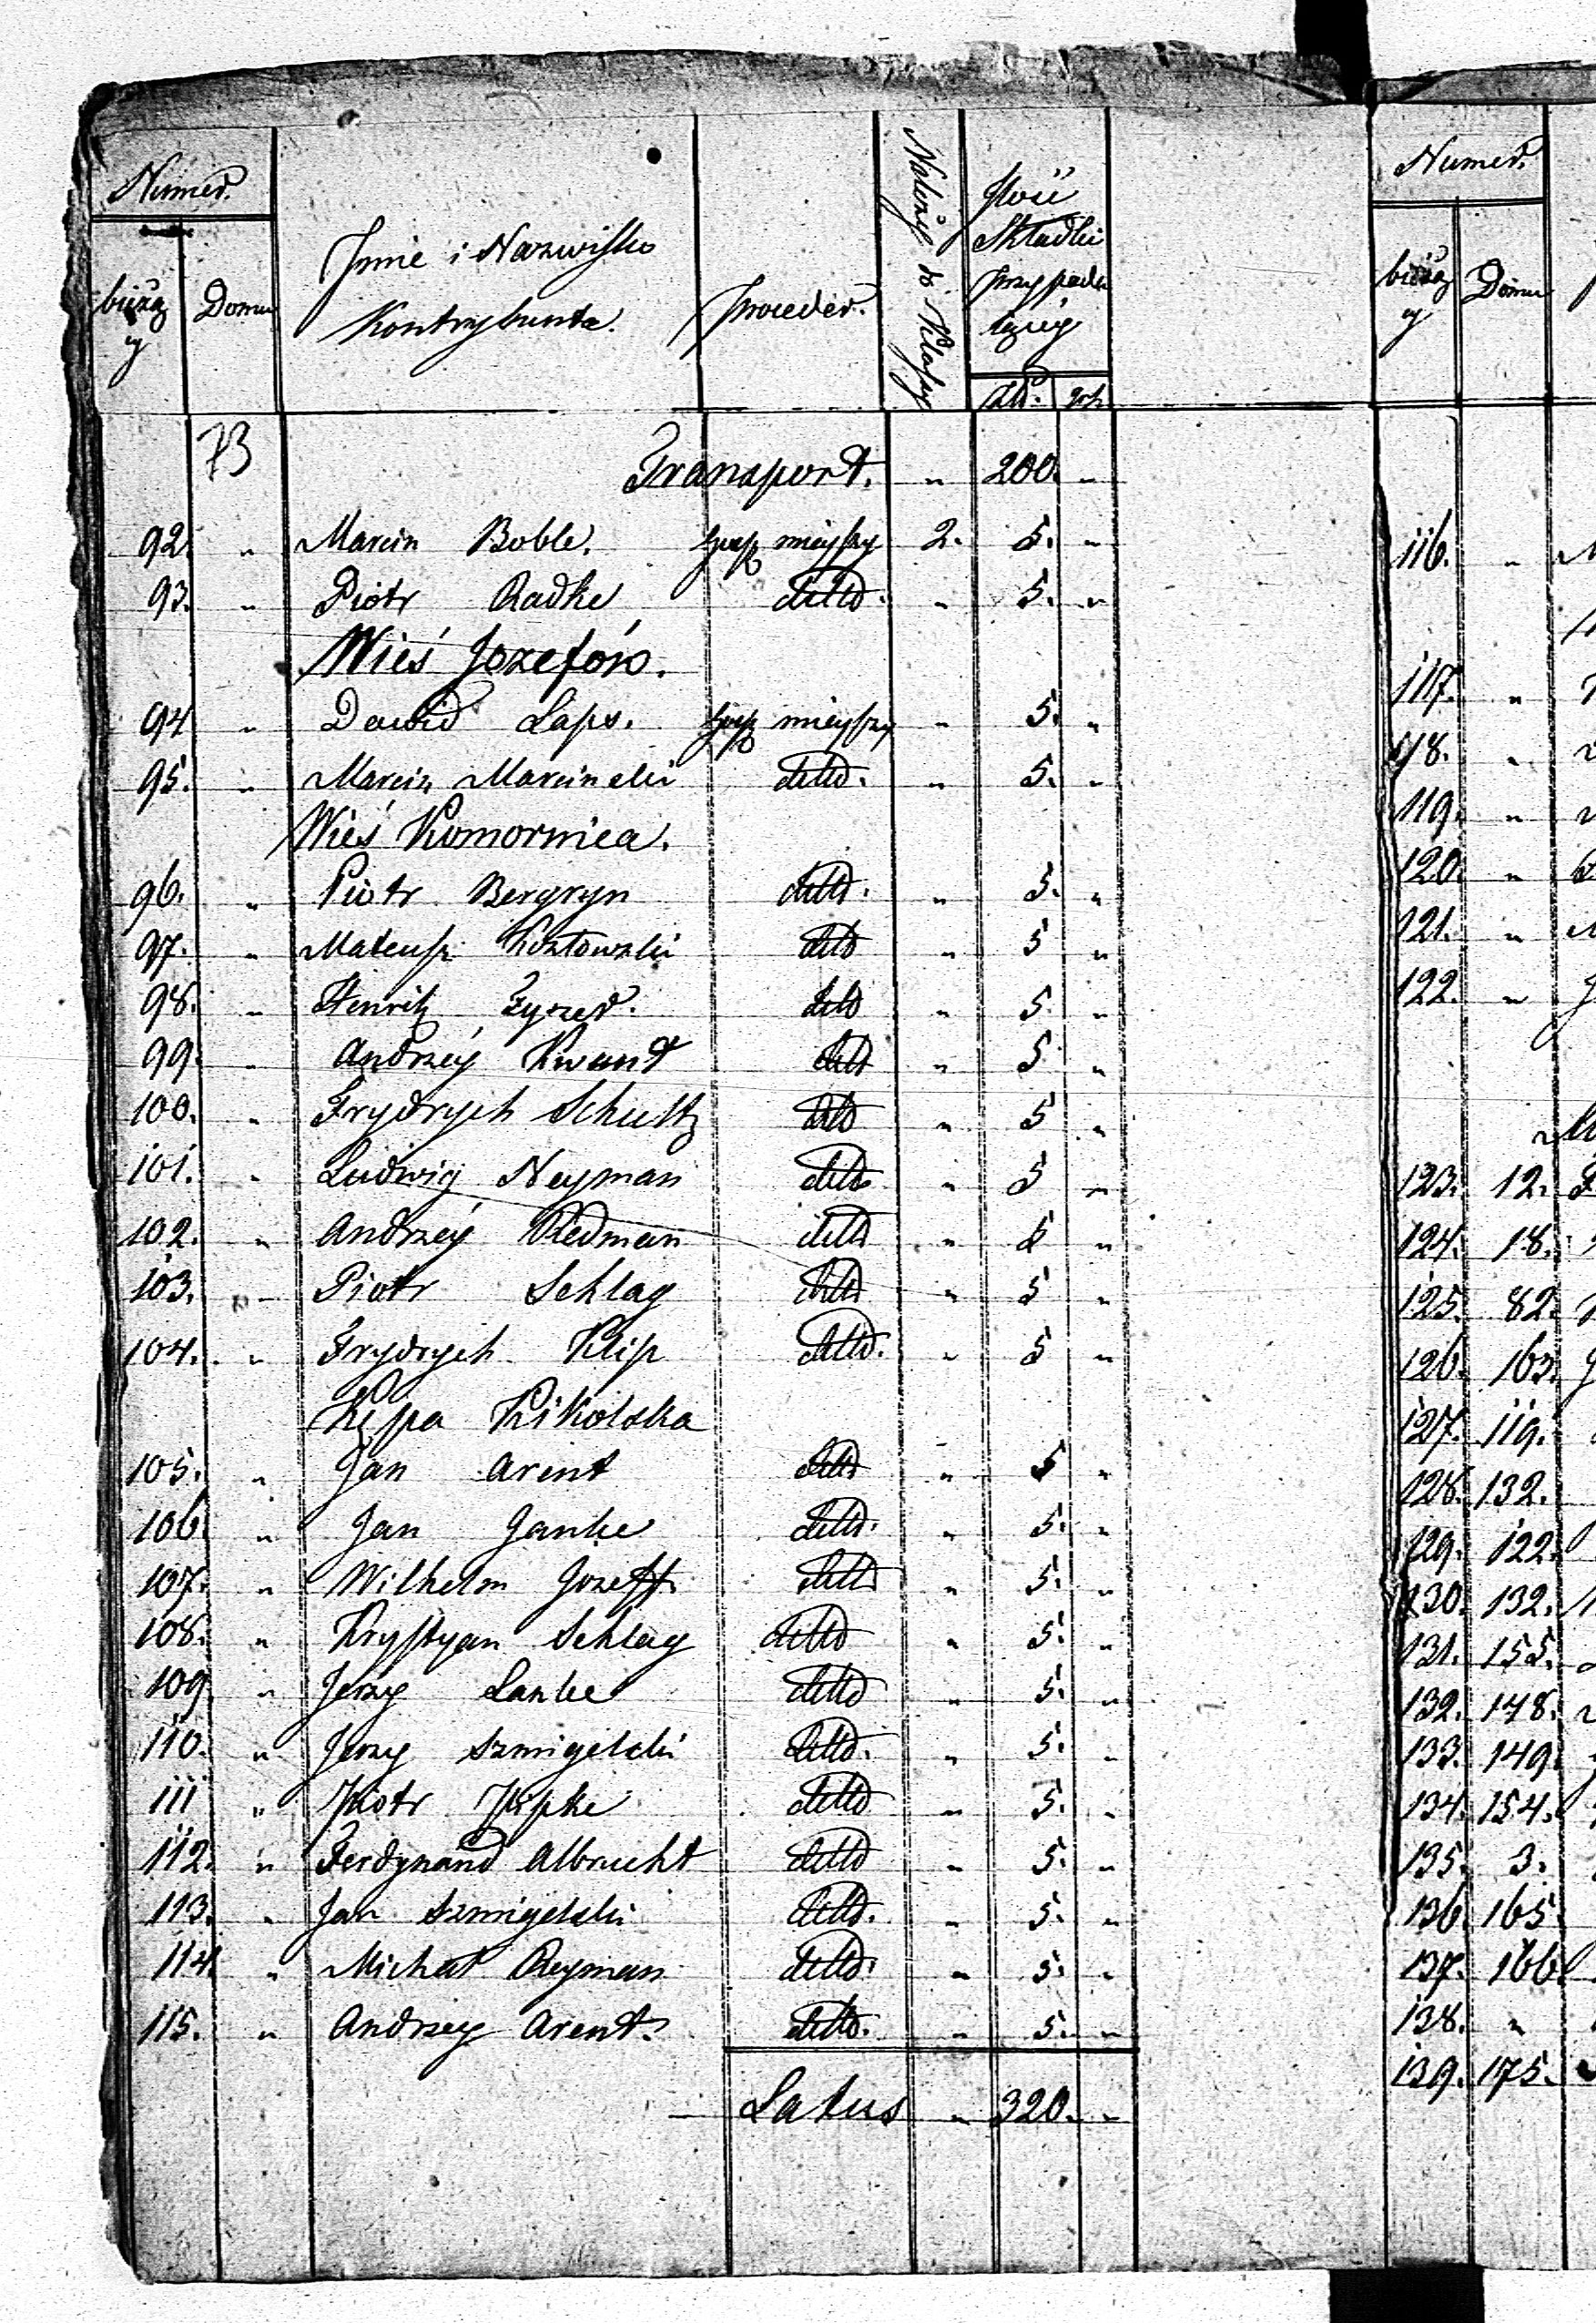 Numer.
bieżący Domu
Jmie i Nazwisko Kontrybuenta.
Proceder.
Należy do Klassy
Jlość Składki przypadaiącéy
Złt. gr.
73
Transport. „ 200. „
92. „ Marcin Boble. Gosp mieyszy 2. 5. „
93. „ Piotr Radke detto. „ 5. „
Wieś Jozefów.
94 „ Dawid Laps. Gosp mieyszy „ 5. „
95. „ Marcin Marcinski detto. „ 5. „
Wieś Komornica.
96. „ Piotr Bergryn detto. „ 5. „
97. „ Mateusz Kozłowski detto „ 5 „
98. „ Henrik Zyzer. detto „ 5 „
99. „ Andrzéy Kwant detto „ 5 „
100. „ Frydrych Schultz detto „ 5 „
101. „ Ludwig Neyman detto „ 5 „
102. „ Andrzéy Redman detto „ 5 „
103. „ Piotr Schlag detto „ 5 „
104. „ Frydrych Klip detto. „ 5 „
Kępa Kikolska
105. „ Jan Arent detto „ 5 „
106 „ Jan Janke detto. „ 5. „
107. „ Wilhelm Jozeff. detto „ 5. „
108. „ Krystyan Schlag detto „ 5. „
109 „ Jerzy Lanke detto „ 5. „
110. „ Jerzy Szmigelski detto. „ 5. „
111 „ Piotr Pipke detto „ 5. „
112. „ Ferdynand Albrucht detto „ 5. „
113. „ Jan Szmigelski detto. „ 5. „
114 „ Michał Reyman detto. „ 5. „
115. „ Andrzey Arent. detto. „ 5. „
Latus „ 320. „
Numer.
bieżący Domu
116. „
117. „
118. „
119. „
120. „
121. „
122. „
123. 12.
124. 18.
125. 82.
126. 163.
127. 119.
128. 132.
129. 122.
130. 132.
131. 155.
132. 148.
133. 149.
134. 154.
135. 3.
136. 165
137. 166
138. „
139. 175.